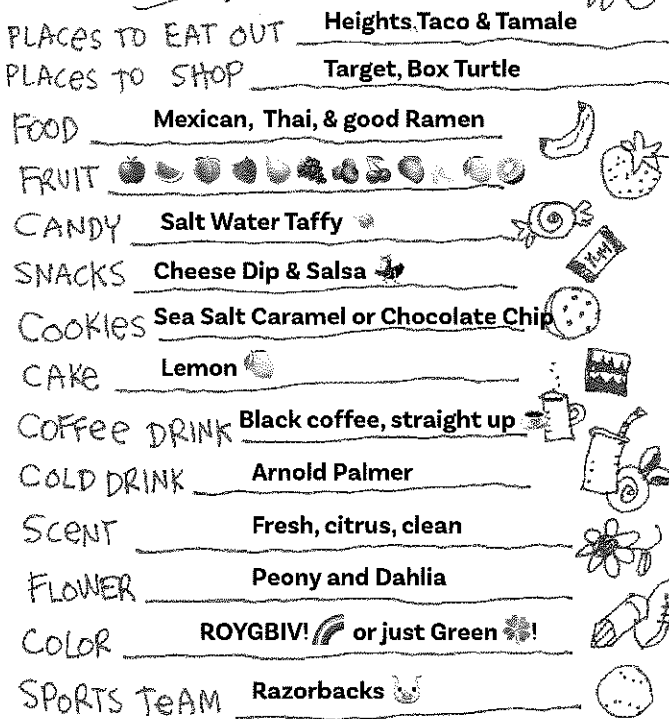 PLACES TO EAT OUT Heights Taco & Tamale
PLACES TO SHOP Target, Box Turtle
FOOD Mexican, Thai, & good Ramen
FRUIT
CANDY Salt Water Taffy
SNACKS Cheese Dip & Salsa
COOKIES Sea Salt Caramel or Chocolate Chip
YUM
CAKE Lemon
COFFEE DRINK Black coffee, straight up
COLD DRINK Arnold Palmer
SCENT Fresh, citrus, clean
FLOWER Peony and Dahlia
COLOR ROYGBIV! or just Green !
SPORTS TEAM Razorbacks